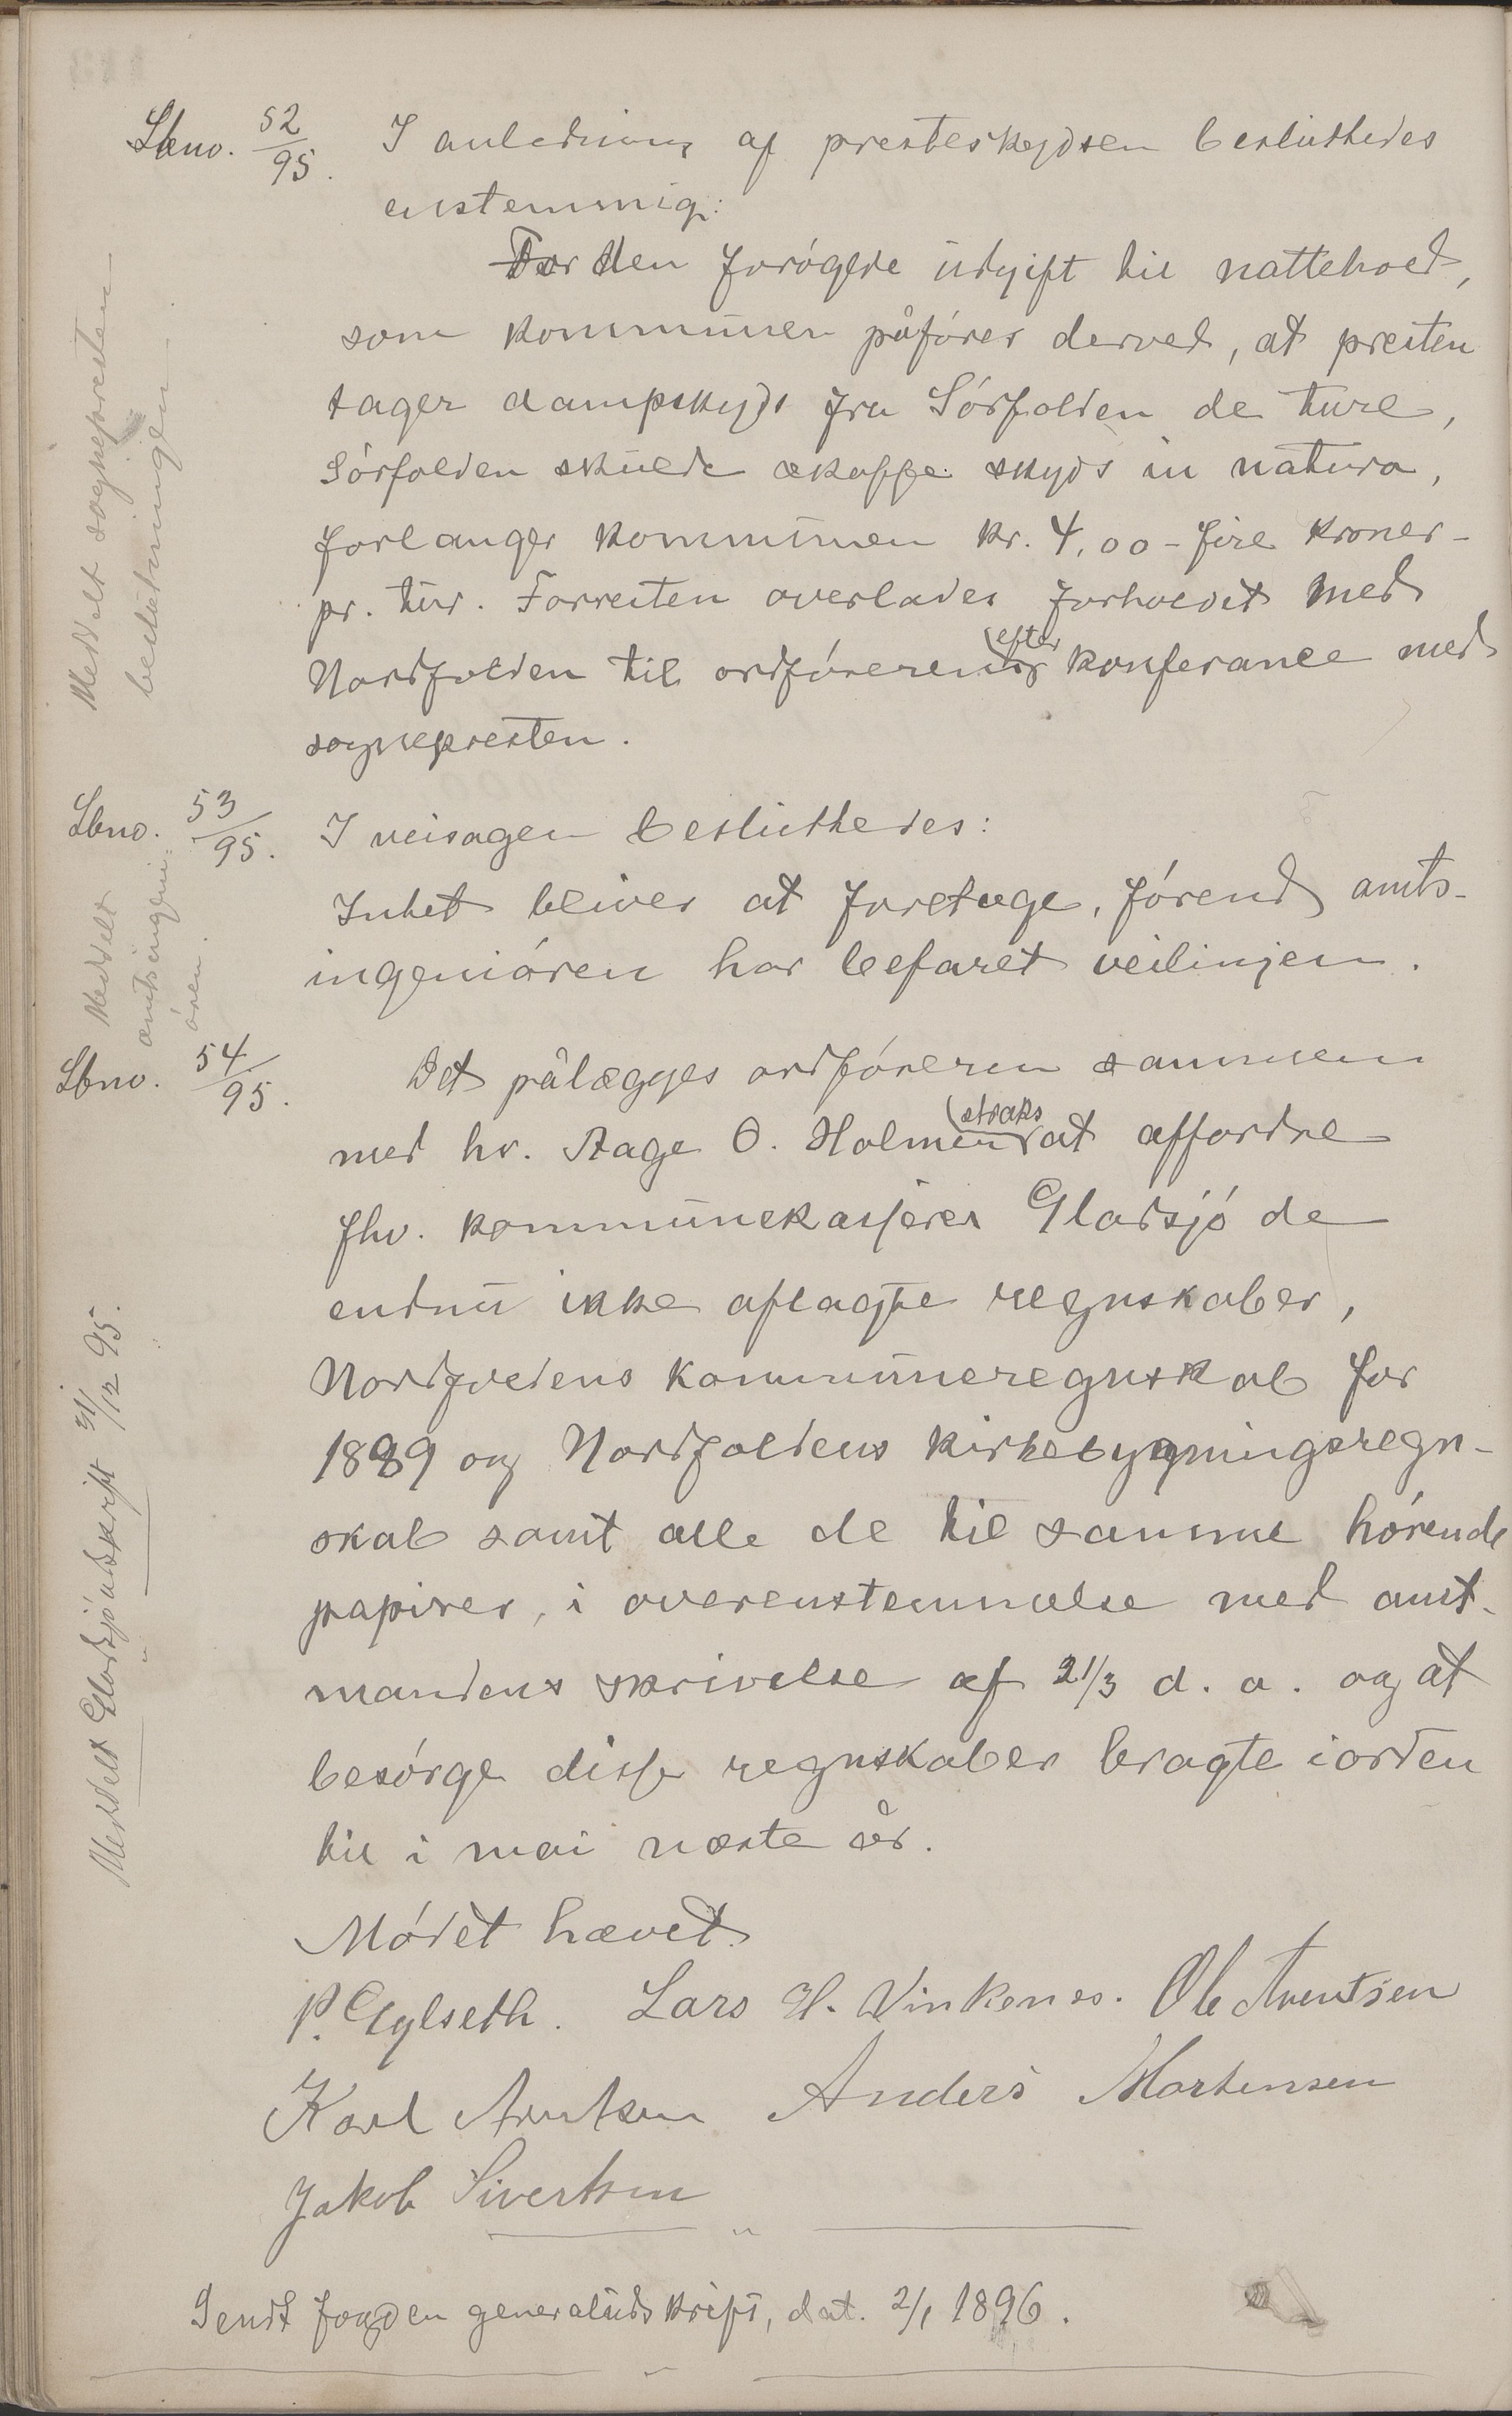 Lbno. 52/95. I anledning af presteskydsen besluttedes
enstemmig:
For den forøgede udgift til nattehold,
som kommunen påføres derved, at presten
tager dampskyds fra Sørfolden de ture,
Sørfolden skulde skaffe skyds in natura,
forlanger kommunen kr. 4,00 - fire kroner -
pr. tur. Forresten overlades forholdet med
Nordfolden til ordføreren efter konferance med
sognepresten.
Meddelt sognepresten
beslutningen
Lbno. 53/95. I veisagen besluttedes:
Intet bliver at foretage, førend amts-
ingeniøren har befaret veilinjen.
Meddelt
amtsingeni-
øren.
Lbno. 54/95. Det pålægges ordføreren sammen
med hr. Aage O. Holmen straks at affordre
fhv. kommunekasserer Gladsjø de
endnu ikke aflagte regnskaber,
Nordfoldens kommuneregnskab for
1889 og Nordfoldens kirkebygningsregn-
skab samt alle de til samme hørende
papirer, i overenstemmelse med amt-
mandens skrivelse af 21/3 d. a. og at
besørge disse regnskaber bragte i orden
til i mai næste år.
Meddelt Gladsjø udskrift 31/12 95.
Mødet hævet.
P. Gylseth. Lars H. Vinkenes. Ole Arentsen
Karl Arntsen Anders Mortensen
Jakob Sivertsen
Sendt fogden generaludskrift, dat. 2/1 1896.